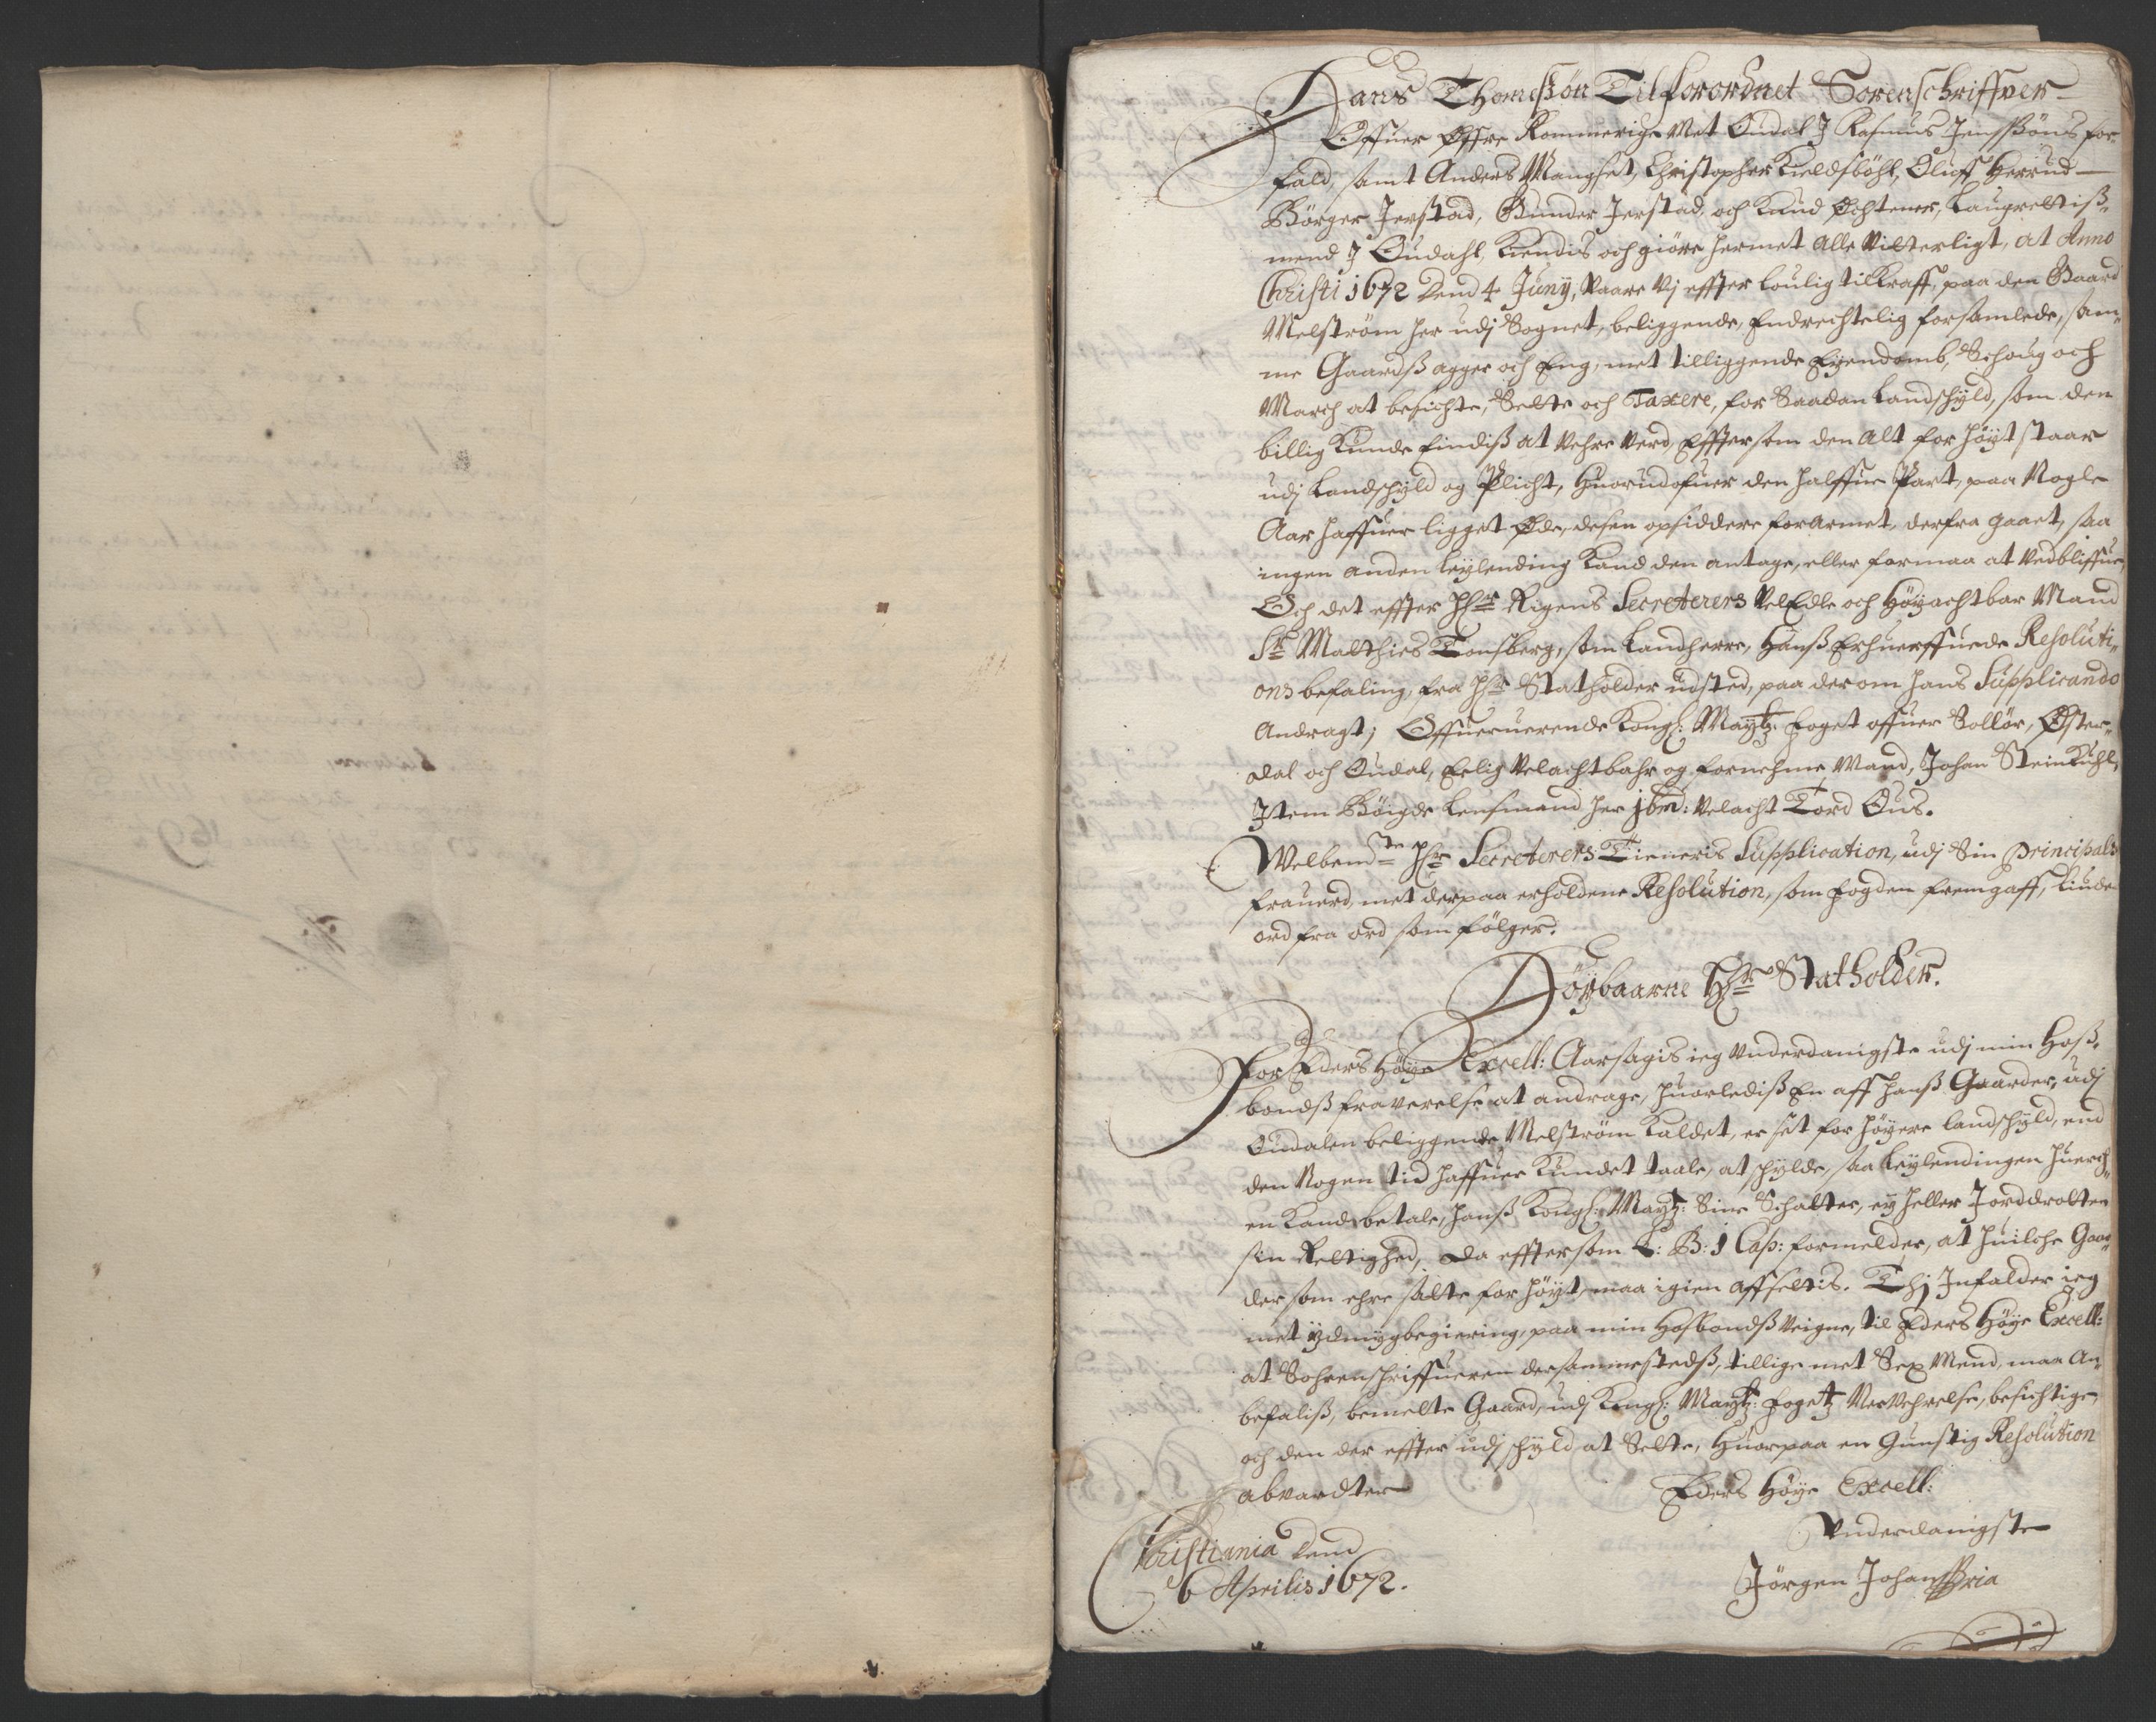 Hans Thomeßøn Tilforordnet Sorenschriffver
Offuer Øffre Rommerige Met Oudal J Rasmus Jenssøns for-
fald, samt Anders Mangset, Christopher Kieldsbøhl, Oluff Herrud
Børger Jerstad, Gunder Jerstad, och Knud Ochtener, Laugrettiß-
mend J Oudahl, Kiendis och giøre hermet Alle Vitterligt, at Anno
Christi 1672 Dend 4 Junij, Vaare Vj effter loulig tilkraff, paa den Gaard
Melstrøm her udj Sognet, beliggende, Endrechtelig forsamlede, sam-
me Gaardß agger och Eng, met tilliggende Eyendomb, Schoug och
March at besichte, Sette och Taxere, for Saadan Landschyld, som den
billig Kunde findiß at Vehre Verd, Efftersom den Alt for høyt staar
udj Landschyld og Plicht, Huorudofuer den halffue Part, paa Nogle
Aar haffuer ligget Øde, desen opsiddere forarmet, derfra gaaet, saa
ingen anden leylending Kand den antage, eller formaa at Vedbliffue,
Och det effter Hr Rigens Secreterers VelEdle och Høyachtbar Mand
Sr Matthies Tonsberg, som Landherre, Hanß Erhuerffuede Resoluti-
ons befaling, fra Hr Statholder udsted, paa derom hans Supplicando
Andragt; Offueruerende Kongl: Maytz: foget offuer Sollør, Øster-
dal och Oudal, Erlig Velachtbahr og fornehme Mand, Johan Steinkuhl,
Jtem Bøigde Lensmand her ibm: Velacht Tord Ous.
Welbemte Hr Secreterers Tieneris Supplication, udj Sin Principals
frauerd, met derpaa erholdene Resolution, som fogden fremgaff, Liude
ord fra ord som følger.
Høybaarne Hr Statholder.
For Eders Høye Excell: Aarsagis ieg Vnderdanigste udj min Hoß-
bondß fraverelse at andrage, huorlediß En aff hanß Gaarder, udj
Oudalen beliggende Melstrøm Kaldet, er set for høyere landschyld, end
den Nogen tid haffuer Kundet taale, at schylde, saa Leylendingen huerch-
en Kand betale, hanß Kongl: Maytz: Sine Schatter, ey heller Jorddrotten
sin Rettighed, da efftersom L: B: 1 Cap: formelder, at huilche Gaar-
der som ehre satte for høyt, maa igien affsettis. Thj Jnfalder ieg
met ydmygbegiering, paa min Hosbondß Veigne, til Eders Høye Excell:
at Sohrenschriffueren dersammestedß, tillige met Sex Mend, maa An-
befaliß, bemelte Gaard, udj Kongl: Maytz: fogetz Nerverelse, besichtige,
och den der effter udj schyld at Sette, Huorpaa en Gunstig Resolution
abvardter
Eders Høye Excell:
Vnderdanigste
Christiania Dend
6 Aprilis 1672.
Jørgen Johan